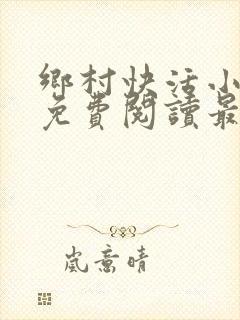 鄉村快活小
免費閱讀最
嵐意晴